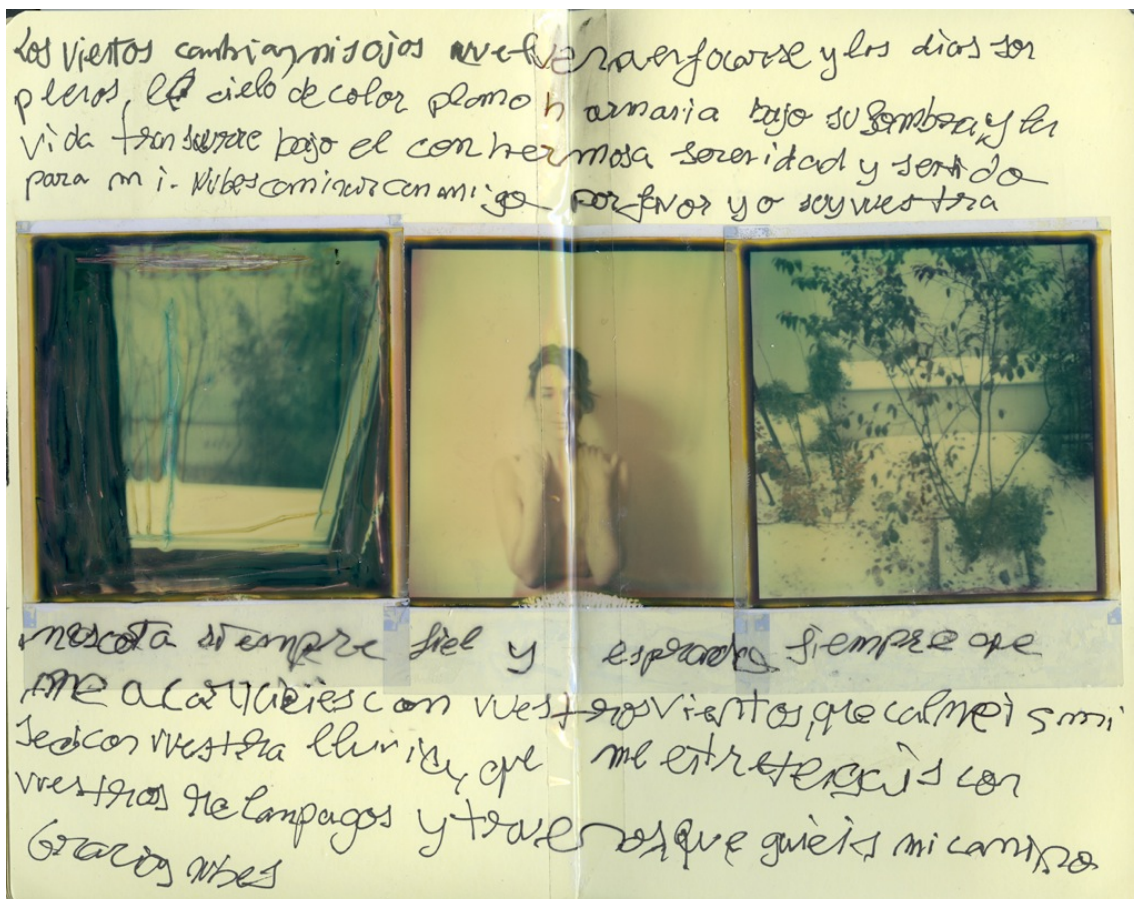 Los vientos cambian mis ojos vuelven a enfocarse y los dias son
plenos, el cielo de color plomo h armaria bajo su sombra y la
vida transurre bajo el con hermosa serenidad y sentido
para mi. Nubes caminar conmigo por favor yo soy vuestra
mascota siempre fiel y esperando siempre que
me acariciéies con vuestros vientos, que calmeis mi
sed con vuestra lluvia, que me entretengáis con
vuestros relampagos y truenos que guieís mi camino
Gracias nubes